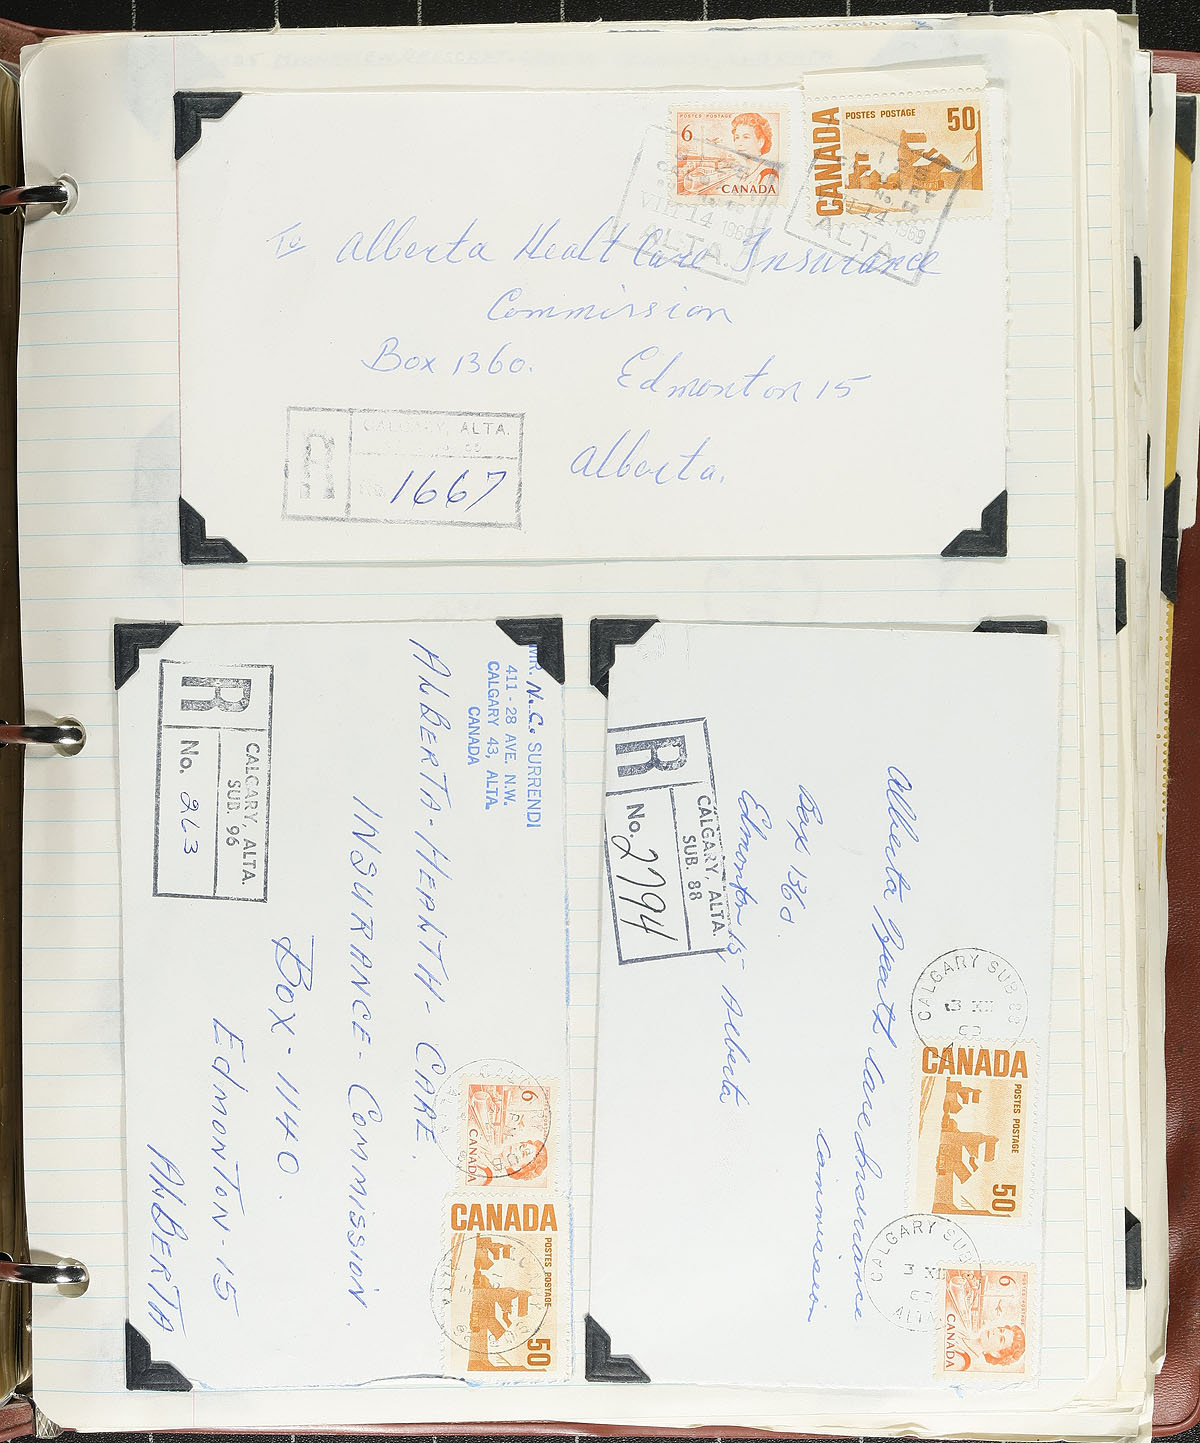 POSTES POSTAGE
6
CANADA
CANADA
POSTES POSTAGE
50
VIII 14 1969
ALTA.
VIII 14 1969
ALTA.
To Alberta Healt Care Insurance
Commission
Box 1360.
Edmonton 15
Alberta.
R
CALGARY, ALTA.
No. 1667
MR. N. C. SURRENDI
411 - 28 AVE. N.W.
CALGARY 43, ALTA.
CANADA
R
CALGARY, ALTA.
SUB. 96
No. 263
ALBERTA-HEALTH-CARE.
INSURANCE-COMMISSION
BOX-1140.
EDMONTON-15
ALBERTA
6
CANADA
CANADA
POSTES POSTAGE
50
R
CALGARY, ALTA.
SUB. 88
No. 2794
Alberta Health Care Insurance
Commission
Box 1360.
Edmonton 15 Alberta
CALGARY SUB 88
3 XII
CANADA
POSTES POSTAGE
50
CALGARY SUB
3 XII
6
CANADA